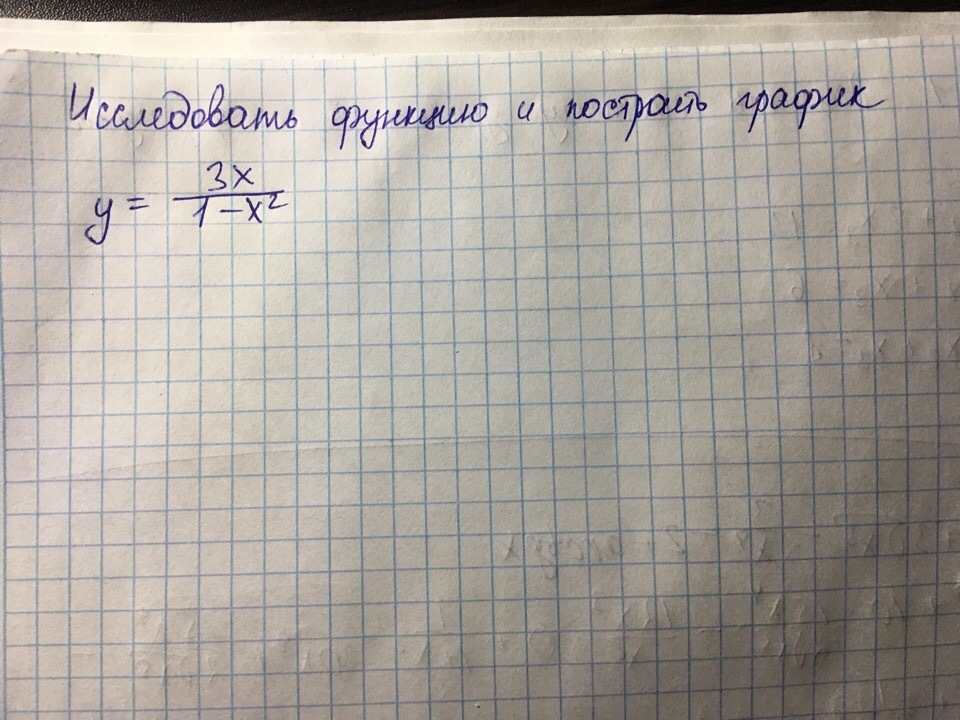 Исследовать функцию и построить график
y = 3x / 1-x²